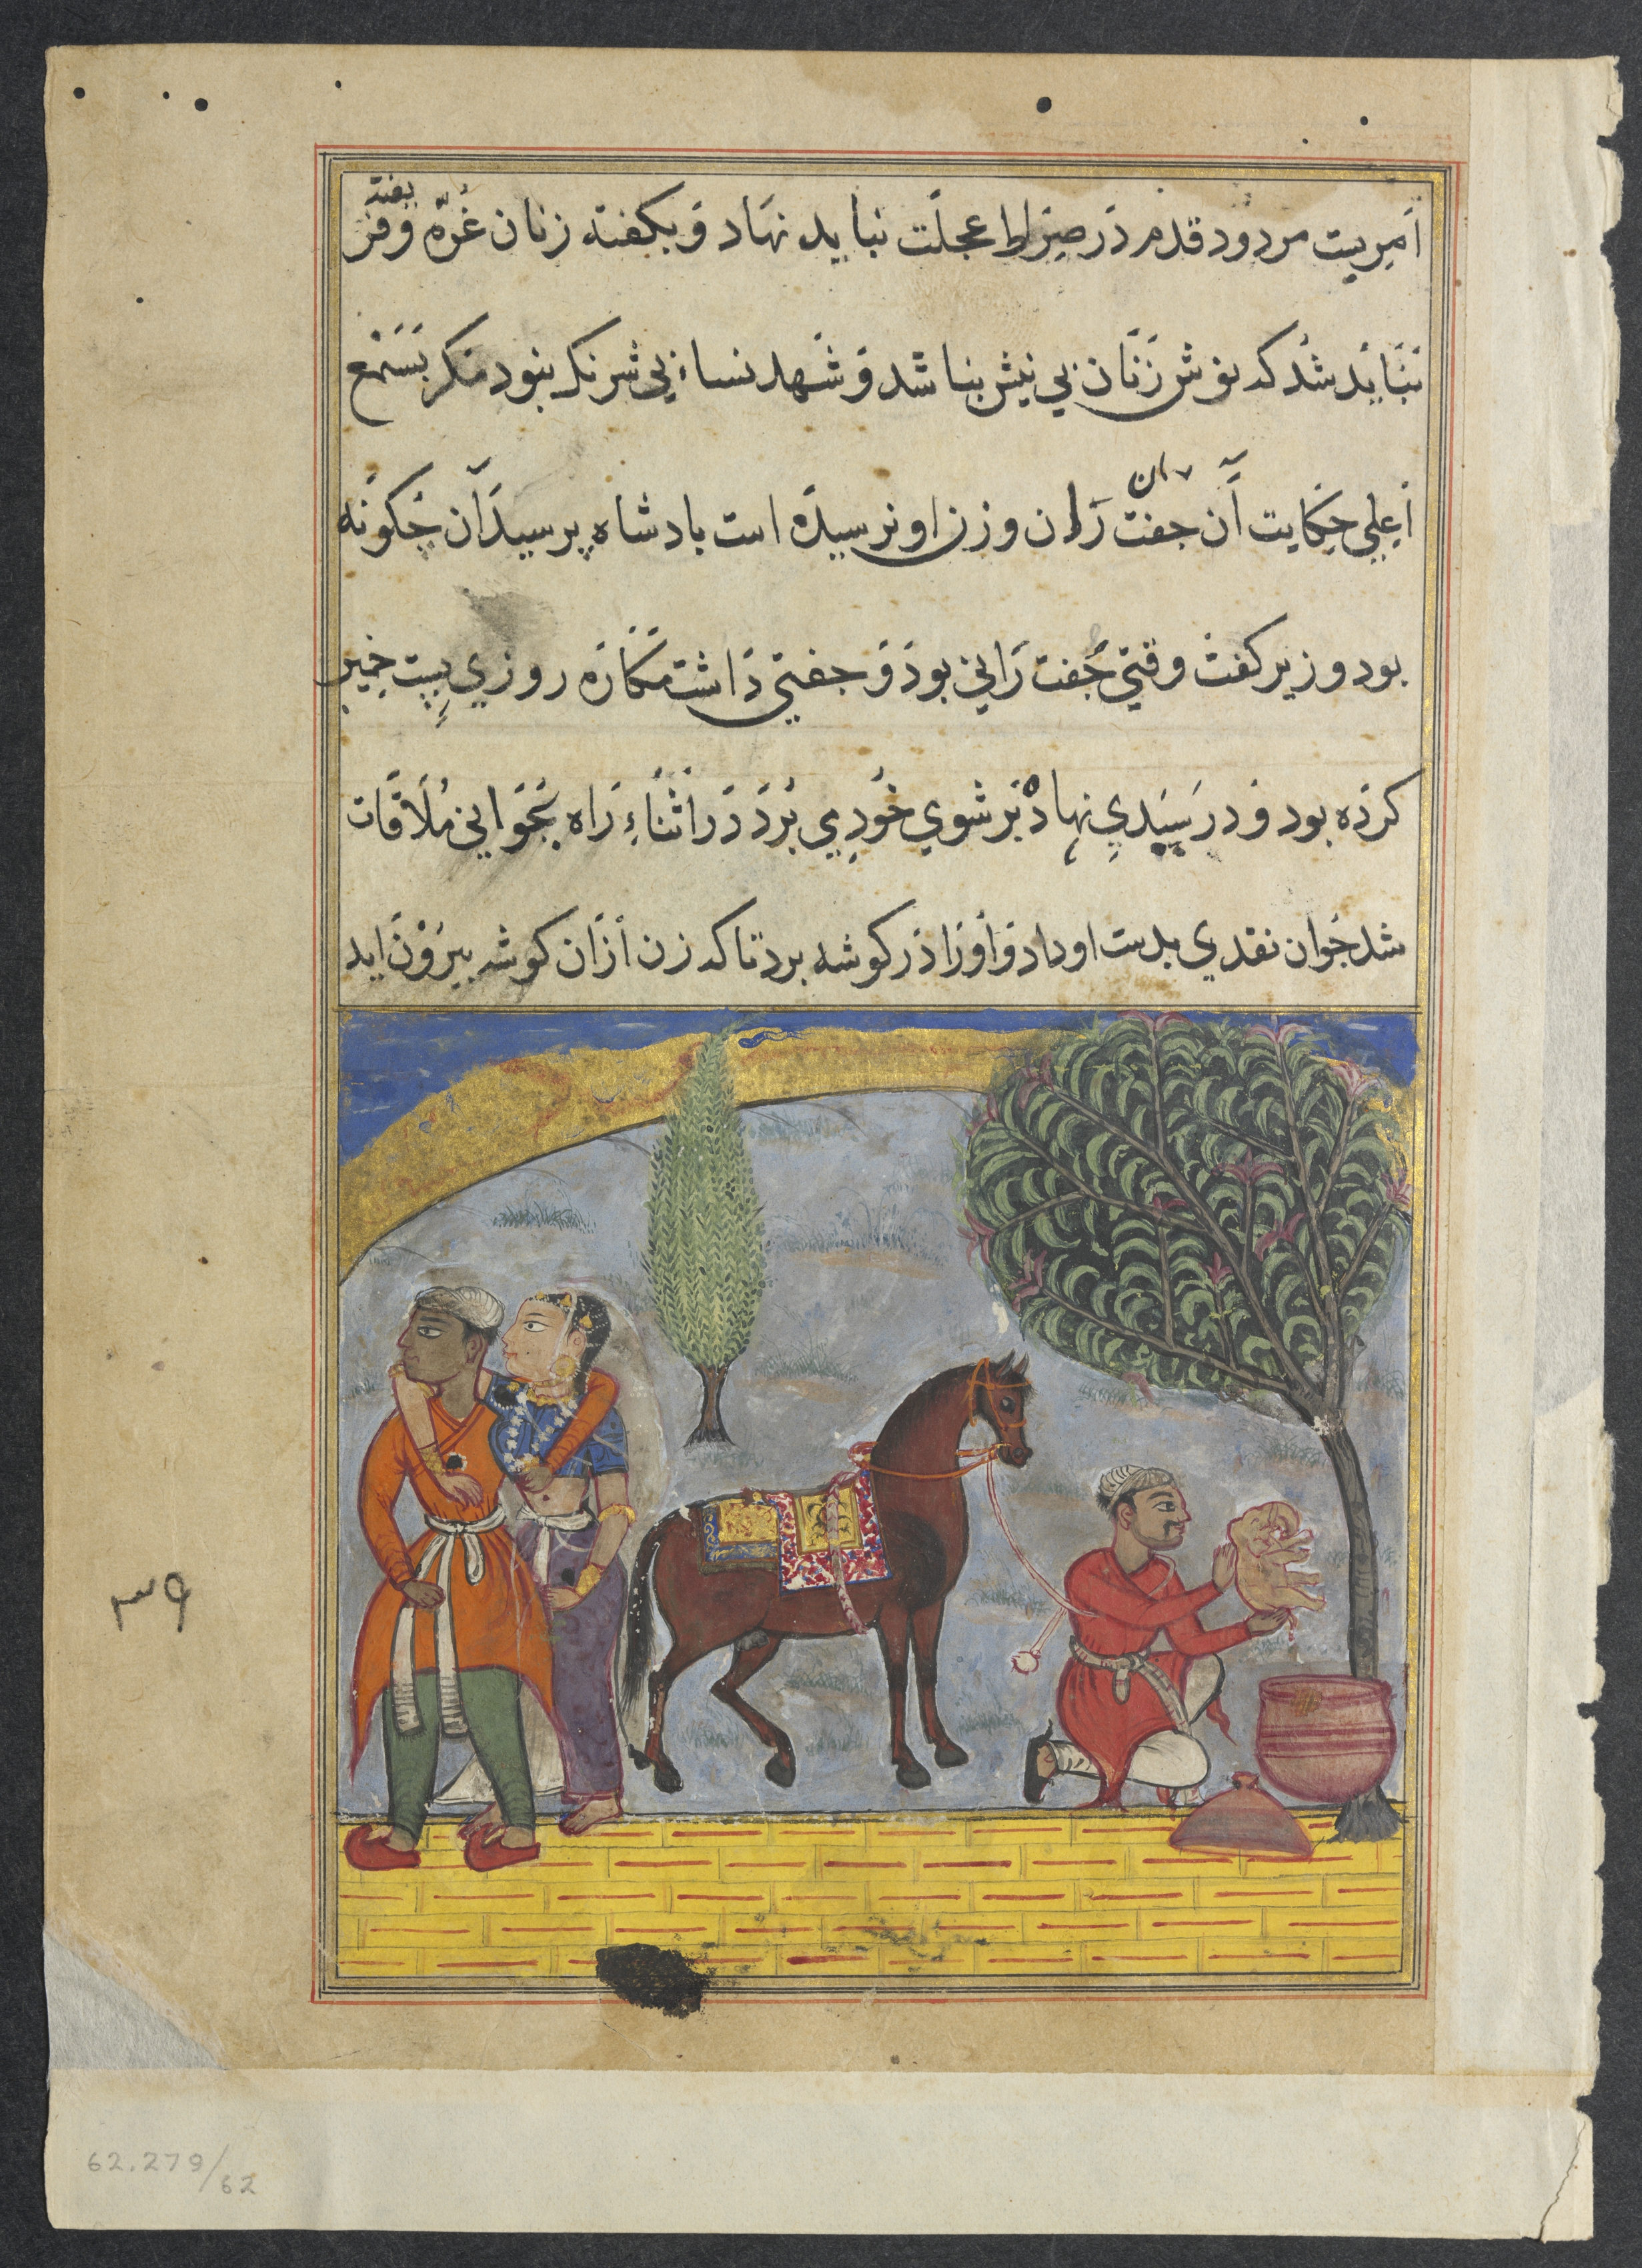 امریست مردود قدم در صراط عجلت نباید نهاد و بکفته زنان غرّه و فریفته
نباید شد که نوش زنان بی نیش نباشد و شهد نساء بی شرنک نبود مکر بسمع
اعلی حکایت آن جفت ران و زن او نرسیده است بادشاه پرسید آن چکونه
بود وزیر کفت وقتی جفت رانی بود و جفتی داشت مکاره روزی خمیر
کرده بود و در سبدی نهاد بر شوی خود می برد در اثناء راه بجوانی ملاقات
شد جوان نقدی بدست او داد و او را در کوشه برد تا که زن ازان کوشه بیرون اید
62.279/62